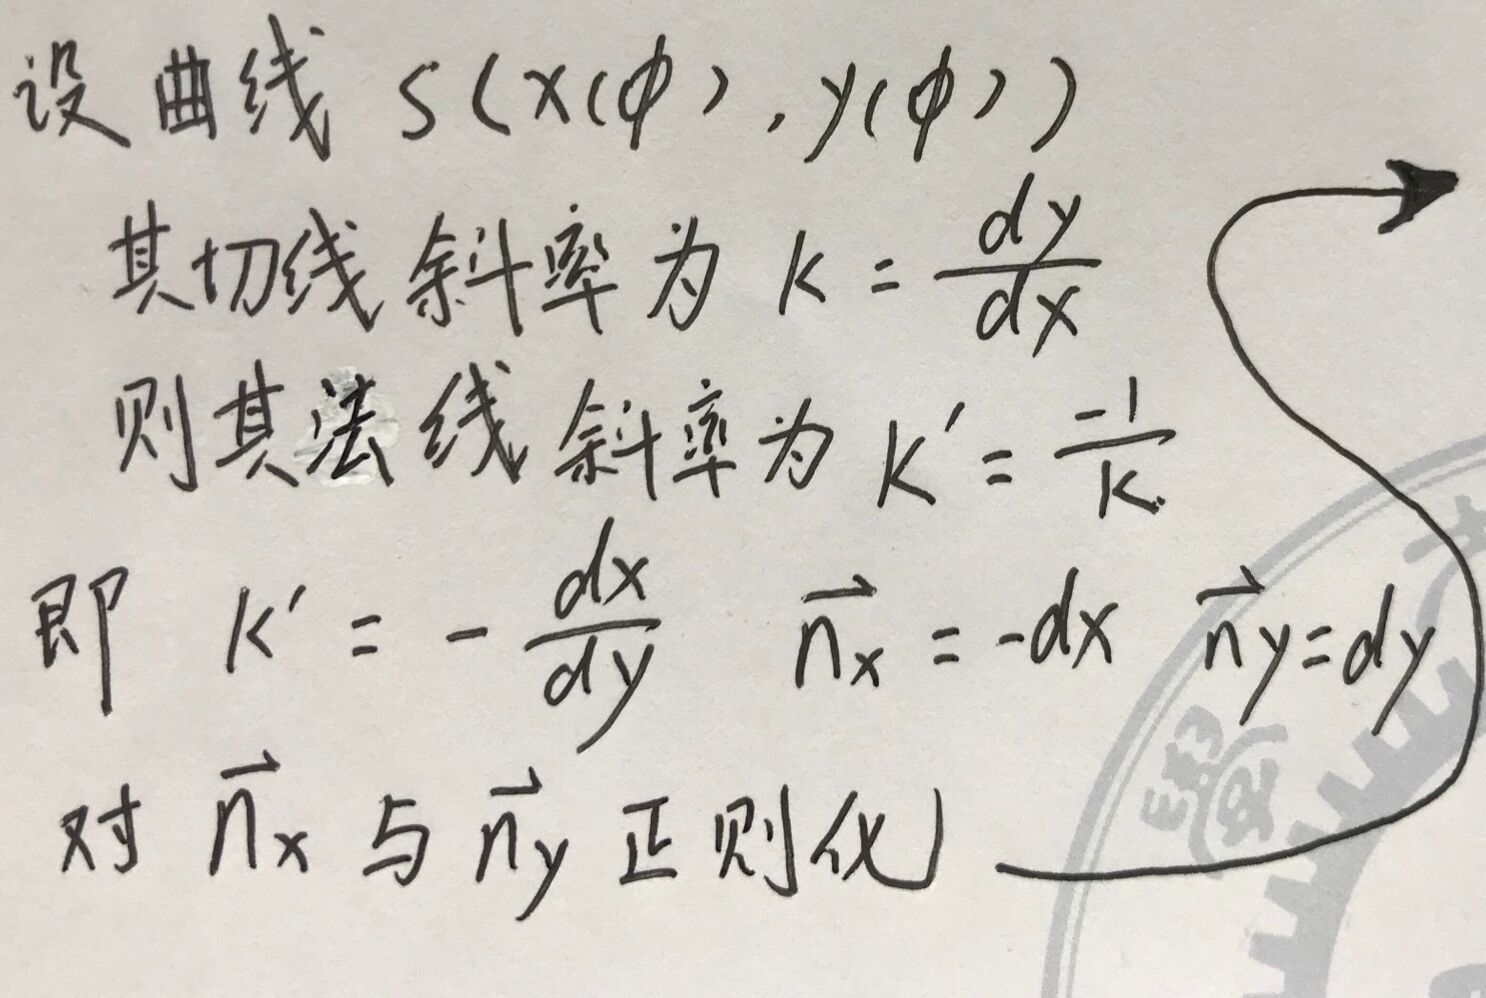 设曲线 S(x(φ),y(φ))
其切线斜率为 k = dy/dx
则其法线斜率为 k' = -1/k
即 k' = - dx/dy n⃗x = -dx n⃗y = dy
对 n⃗x 与 n⃗y 正则化